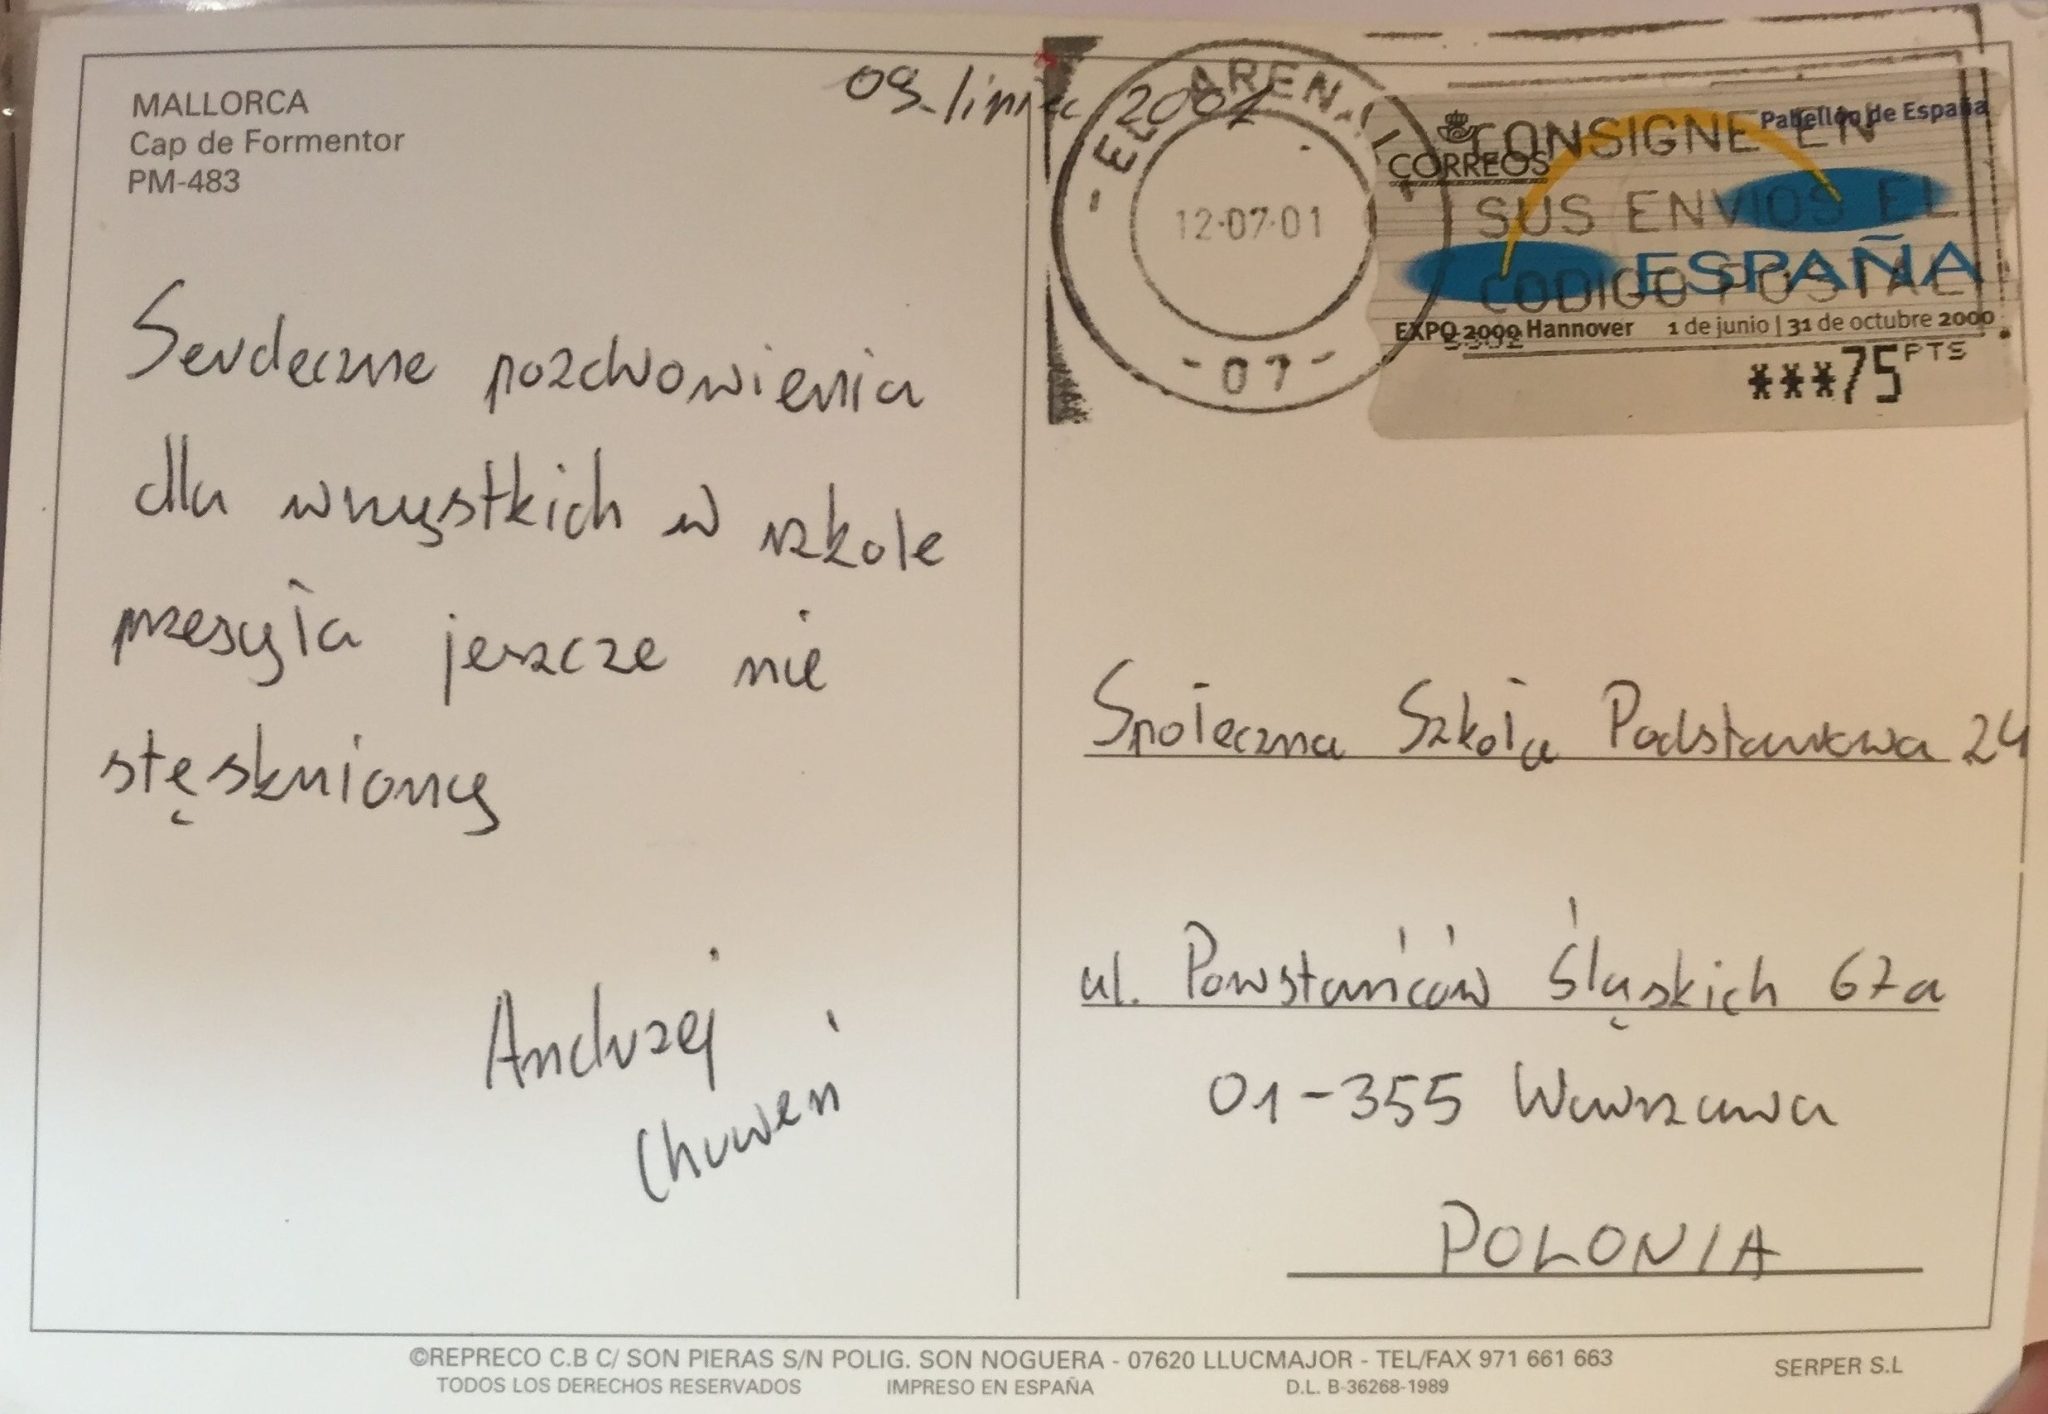 MALLORCA
Cap de Formentor
PM-483
09 lipiec 2001
Serdeczne pozdrowienia
dla wszystkich w szkole
przesyła jeszcze nie
stęskniony
Andrzej
Chuweń
EL ARENAL
12-07-01
- 07 -
CONSIGNE EN
SUS ENVIOS EL
CODIGO POSTAL
CORREOS
Pabellón de España
ESPAÑA
EXPO 2000 Hannover 1 de junio | 31 de octubre 2000
***75 PTS
Społeczna Szkoła Podstawowa 24
ul. Powstańców Śląskich 67a
01-355 Warszawa
POLONIA
©REPRECO C.B C/ SON PIERAS S/N POLIG. SON NOGUERA - 07620 LLUCMAJOR - TEL/FAX 971 661 663
TODOS LOS DERECHOS RESERVADOS IMPRESO EN ESPAÑA D.L. B-36268-1989
SERPER S.L